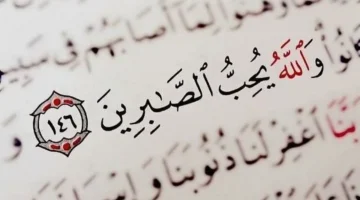 وَهَنُوا۟ لِمَآ أَصَابَهُمْ فِى سَبِيلِ
وَٱللَّهُ يُحِبُّ ٱلصَّٰبِرِينَ ١٤٦ وَ
رَبَّنَا ٱغْفِرْ لَنَا ذُنُوبَنَا وَإِسْرَافَنَا